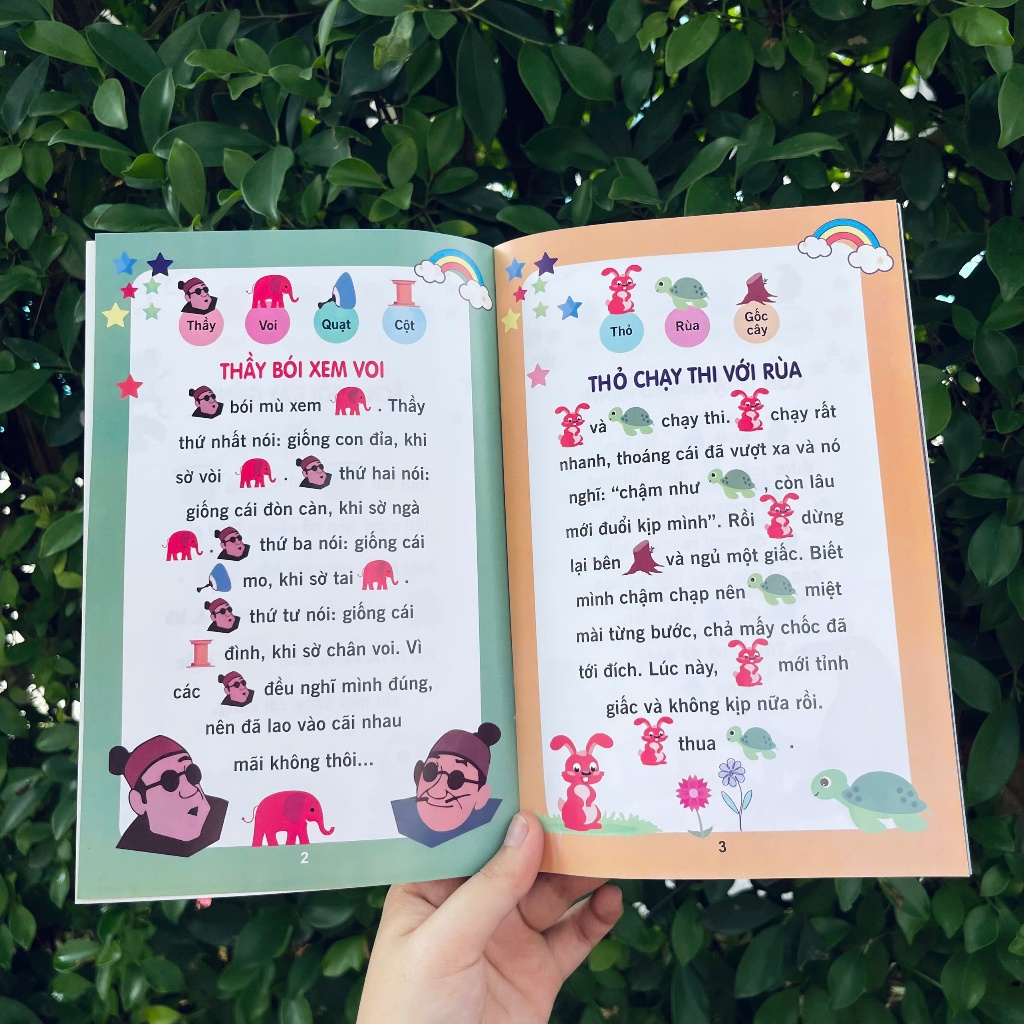 Thầy
Voi
Quạt
Cột
THẦY BÓI XEM VOI
bói mù xem . Thầy
thứ nhất nói: giống con đỉa, khi
sờ vòi . thứ hai nói:
giống cái đòn càn, khi sờ ngà
. thứ ba nói: giống cái
mo, khi sờ tai .
thứ tư nói: giống cái
đình, khi sờ chân voi. Vì
các đều nghĩ mình đúng,
nên đã lao vào cãi nhau
mãi không thôi...
2
Thỏ
Rùa
Gốc
cây
THỎ CHẠY THI VỚI RÙA
và chạy thi. chạy rất
nhanh, thoáng cái đã vượt xa và nó
nghĩ: “chậm như , còn lâu
mới đuổi kịp mình”. Rồi dừng
lại bên và ngủ một giấc. Biết
mình chậm chạp nên miệt
mài từng bước, chả mấy chốc đã
tới đích. Lúc này, mới tỉnh
giấc và không kịp nữa rồi.
thua .
3